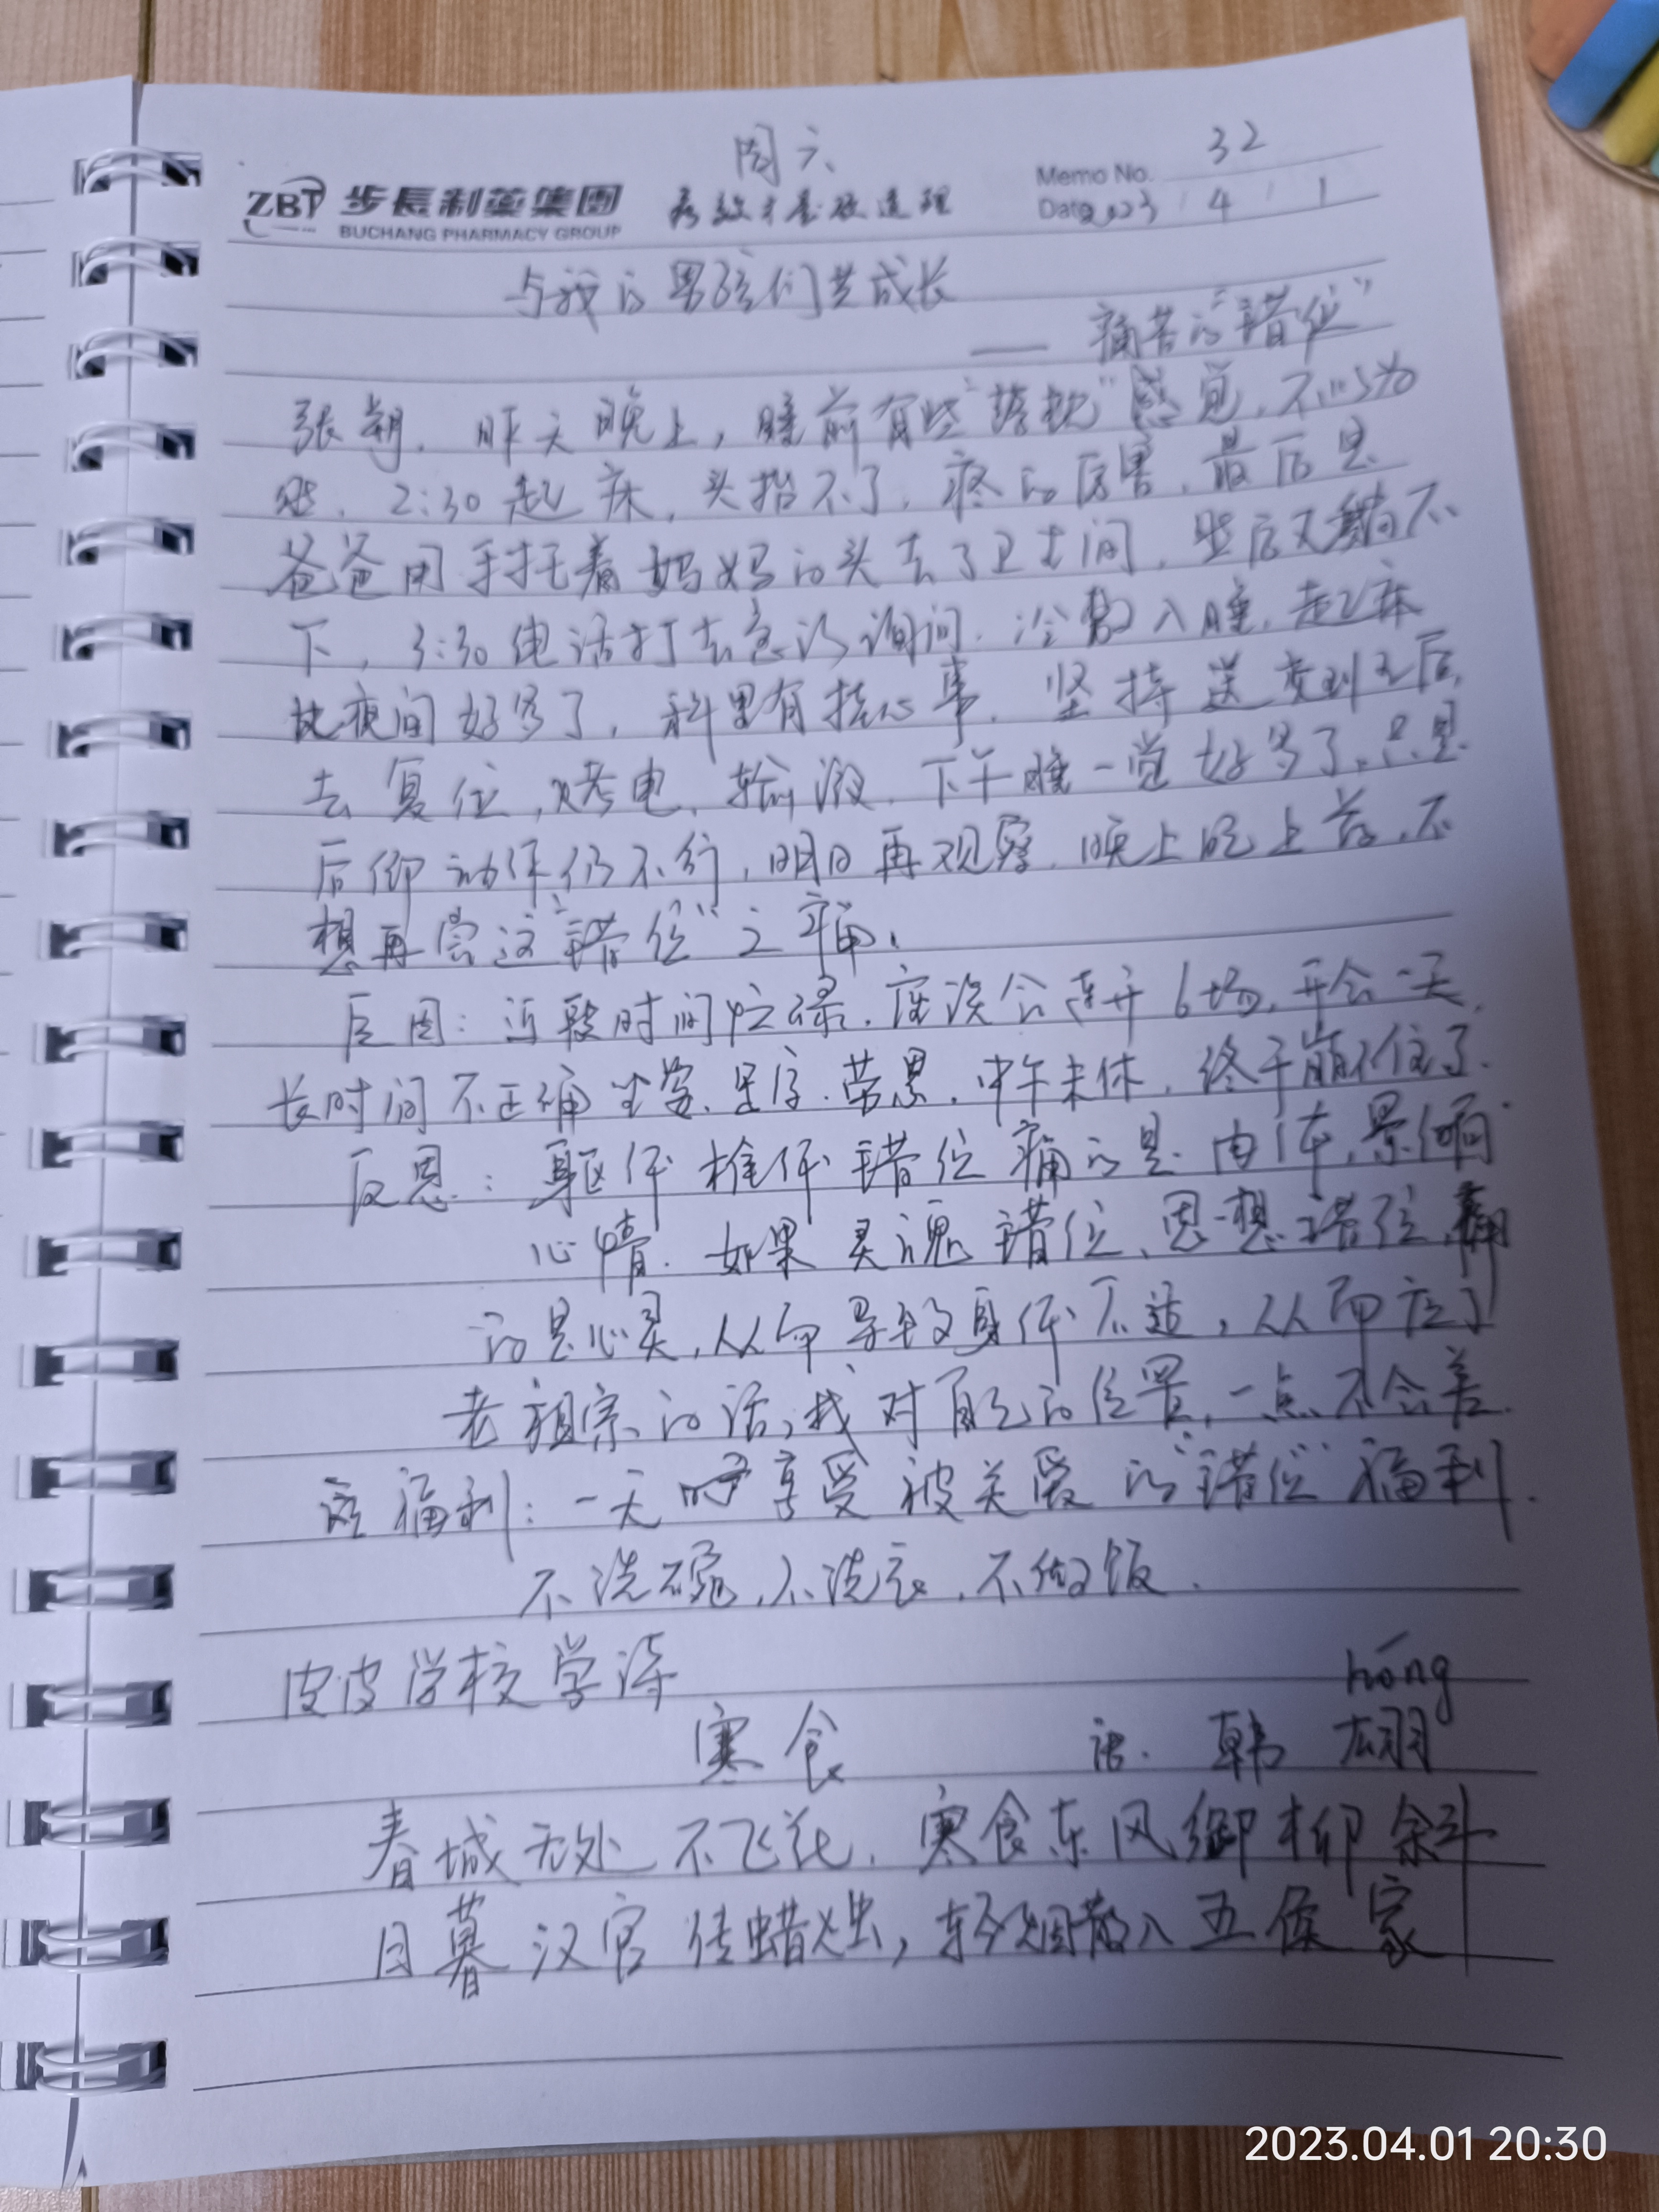 周六
Memo No. 32
ZBT 步長制药集团 疗效才是硬道理
BUCHANG PHARMACY GROUP
Date 2023 / 4 / 1
与我的男孩们共成长
—— 痛苦的"错位"
张朝，昨天晚上，睡前有些"落枕"感觉，不以为
然，2:30起床，头抬不了，疼的厉害，最后是
爸爸用手托着妈妈的头去了卫生间，然后又躺不
下，3:30电话打去急诊询问，冷敷入睡，起床
比夜间好多了，科里有挂心事，坚持送变到之后，
去复位，烤电，输液，下午睡一觉好多了，只是
后仰动作仍不行，明日再观察，晚上吃上药，不
想再尝这"错位"之痛。
原因：近段时间忙碌，座谈会连开6场，开会一天，
长时间不正确坐姿，是房，劳累，中午未休，终于崩不住了。
反思：躯体椎体错位痛的是肉体，影响
心情，如果灵魂错位、思想错位，痛
的是心灵，从而导致身体不适，从而应了
老祖宗的话，找对自己的位置，一点不会差。
福利：一天享受被关爱的"错位"福利，
不洗碗，不洗衣，不做饭。
皮皮学校学诗
hóng
寒食 唐. 韩翃
春城无处不飞花，寒食东风御柳斜
日暮汉宫传蜡烛，轻烟散入五侯家
2023.04.01 20:30